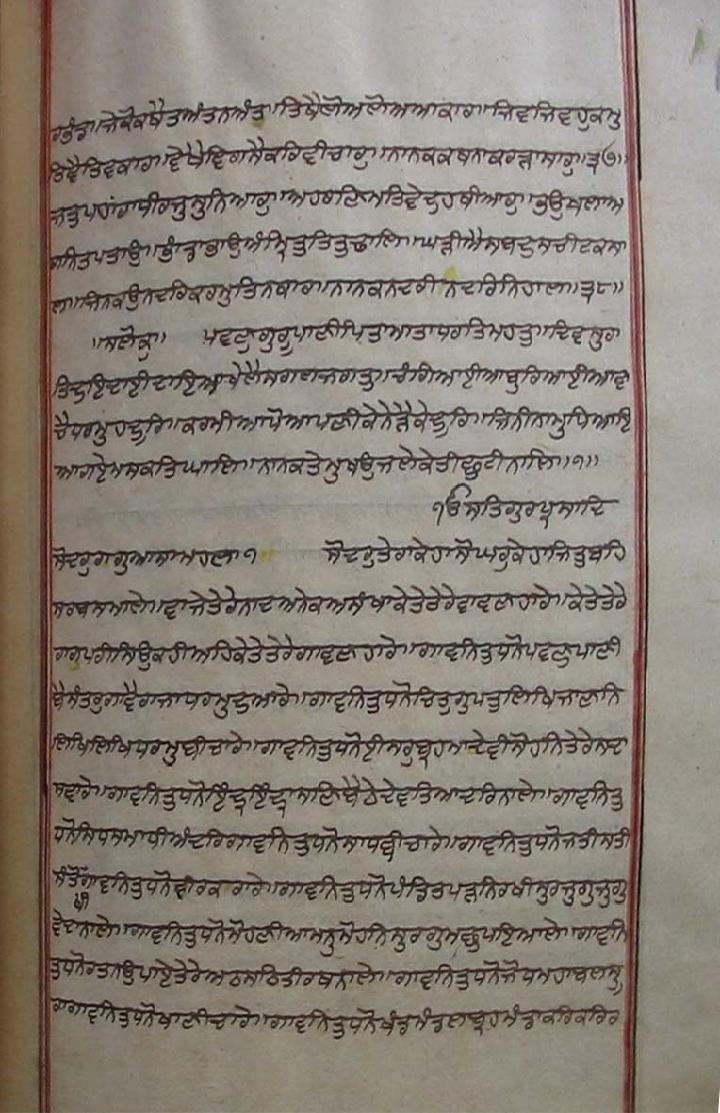 ਵਰਭੰਡ॥ਜੇਕੋਕਥੈਤਅੰਤਨਅੰਤੁ॥ਤਿਥੈਲੋਅਲੋਅਆਕਾਰ॥ਜਿਵਜਿਵਹੁਕਮੁ
ਤਿਵੈਤਿਵਕਾਰ॥ਵੇਖੈਵਿਗਸੈਕਰਿਵੀਚਾਰੁ॥ਨਾਨਕਕਥਨਾਕਰੜਾਸਾਰੁ॥੩੭॥
ਜਤੁਪਹਾਰਾਧੀਰਜੁਸੁਨਿਆਰੁ॥ਅਹਰਣਿਮਤਿਵੇਦੁਹਥੀਆਰੁ॥ਭਉਖਲਾਅ
ਗਨਿਤਪਤਾਉ॥ਭਾਂਡਾਭਾਉਅੰਮ੍ਰਿਤੁਤਿਤੁਢਾਲਿ॥ਘੜੀਐਸਬਦੁਸਚੀਟਕਸਾ
ਲ॥ਜਿਨਕਉਨਦਰਿਕਰਮੁਤਿਨਕਾਰ॥ਨਾਨਕਨਦਰੀਨਦਰਿਨਿਹਾਲ॥੩੮॥
॥ਸਲੋਕੁ॥ ਪਵਣੁਗੁਰੂਪਾਣੀਪਿਤਾਮਾਤਾਧਰਤਿਮਹਤੁ॥ਦਿਵਸੁਰਾ
ਤਿਦੁਇਦਾਈਦਾਇਆਖੇਲੈਸਗਲਜਗਤੁ॥ਚੰਗਿਆਈਆਬੁਰਿਆਈਆਵਾ
ਚੈਧਰਮੁਹਦੂਰਿ॥ਕਰਮੀਆਪੋਆਪਣੀਕੇਨੇੜੈਕੇਦੂਰਿ॥ਜਿਨੀਨਾਮੁਧਿਆਇ
ਆਗਏਮਸਕਤਿਘਾਲਿ॥ਨਾਨਕਤੇਮੁਖਉਜਲੇਕੇਤੀਛੁਟੀਨਾਲਿ॥੧॥
ੴਸਤਿਗੁਰਪ੍ਰਸਾਦਿ
ਸੋਦਰੁਰਾਗੁਆਸਾਮਹਲਾ੧ ਸੋਦਰੁਤੇਰਾਕੇਹਾਸੋਘਰੁਕੇਹਾਜਿਤੁਬਹਿ
ਸਰਬਸਮਾਲੇ॥ਵਾਜੇਤੇਰੇਨਾਦਅਨੇਕਅਸੰਖਾਕੇਤੇਤੇਰੇਵਾਵਣਹਾਰੇ॥ਕੇਤੇਤੇਰੇ
ਰਾਗਪਰੀਸਿਉਕਹੀਅਹਿਕੇਤੇਤੇਰੇਗਾਵਣਹਾਰੇ॥ਗਾਵਨਿਤੁਧਨੋਪਵਣੁਪਾਣੀ
ਬੈਸੰਤਰੁਗਾਵੈਰਾਜਾਧਰਮੁਦੁਆਰੇ॥ਗਾਵਨਿਤੁਧਨੋਚਿਤੁਗੁਪਤੁਲਿਖਿਜਾਣਨਿ
ਲਿਖਿਲਿਖਿਧਰਮੁਬੀਚਾਰੇ॥ਗਾਵਨਿਤੁਧਨੋਈਸਰੁਬ੍ਰਹਮਾਦੇਵੀਸੋਹਨਿਤੇਰੇਸਦਾ
ਸਵਾਰੇ॥ਗਾਵਨਿਤੁਧਨੋਇੰਦ੍ਰਇੰਦ੍ਰਾਸਣਿਬੈਠੇਦੇਵਤਿਆਦਰਿਨਾਲੇ॥ਗਾਵਨਿਤੁ
ਧਨੋਸਿਧਸਮਾਧੀਅੰਦਰਿਗਾਵਨਿਤੁਧਨੋਸਾਧਬੀਚਾਰੇ॥ਗਾਵਨਿਤੁਧਨੋਜਤੀਸਤੀ
ਸੰਤੋਖੀਗਾਵਨਿਤੁਧਨੋਵੀਰਕਰਾਰੇ॥ਗਾਵਨਿਤੁਧਨੋਪੰਡਿਤਪੜਨਿਰਖੀਸੁਰਜੁਗੁਜੁਗੁ
ਵੇਦਾਨਾਲੇ॥ਗਾਵਨਿਤੁਧਨੋਮੋਹਣੀਆਮਨੁਮੋਹਨਿਸੁਰਗੁਮਛੁਪਇਆਲੇ॥ਗਾਵਨਿ
ਤੁਧਨੋਰਤਨਉਪਾਏਤੇਰੇਅਠਸਠਿਤੀਰਥਨਾਲੇ॥ਗਾਵਨਿਤੁਧਨੋਜੋਧਮਹਾਬਲਸੂ
ਰਾਗਾਵਨਿਤੁਧਨੋਖਾਣੀਚਾਰੇ॥ਗਾਵਨਿਤੁਧਨੋਖੰਡਮੰਡਲਬ੍ਰਹਮੰਡਾਕਰਿਕਰਿਰ